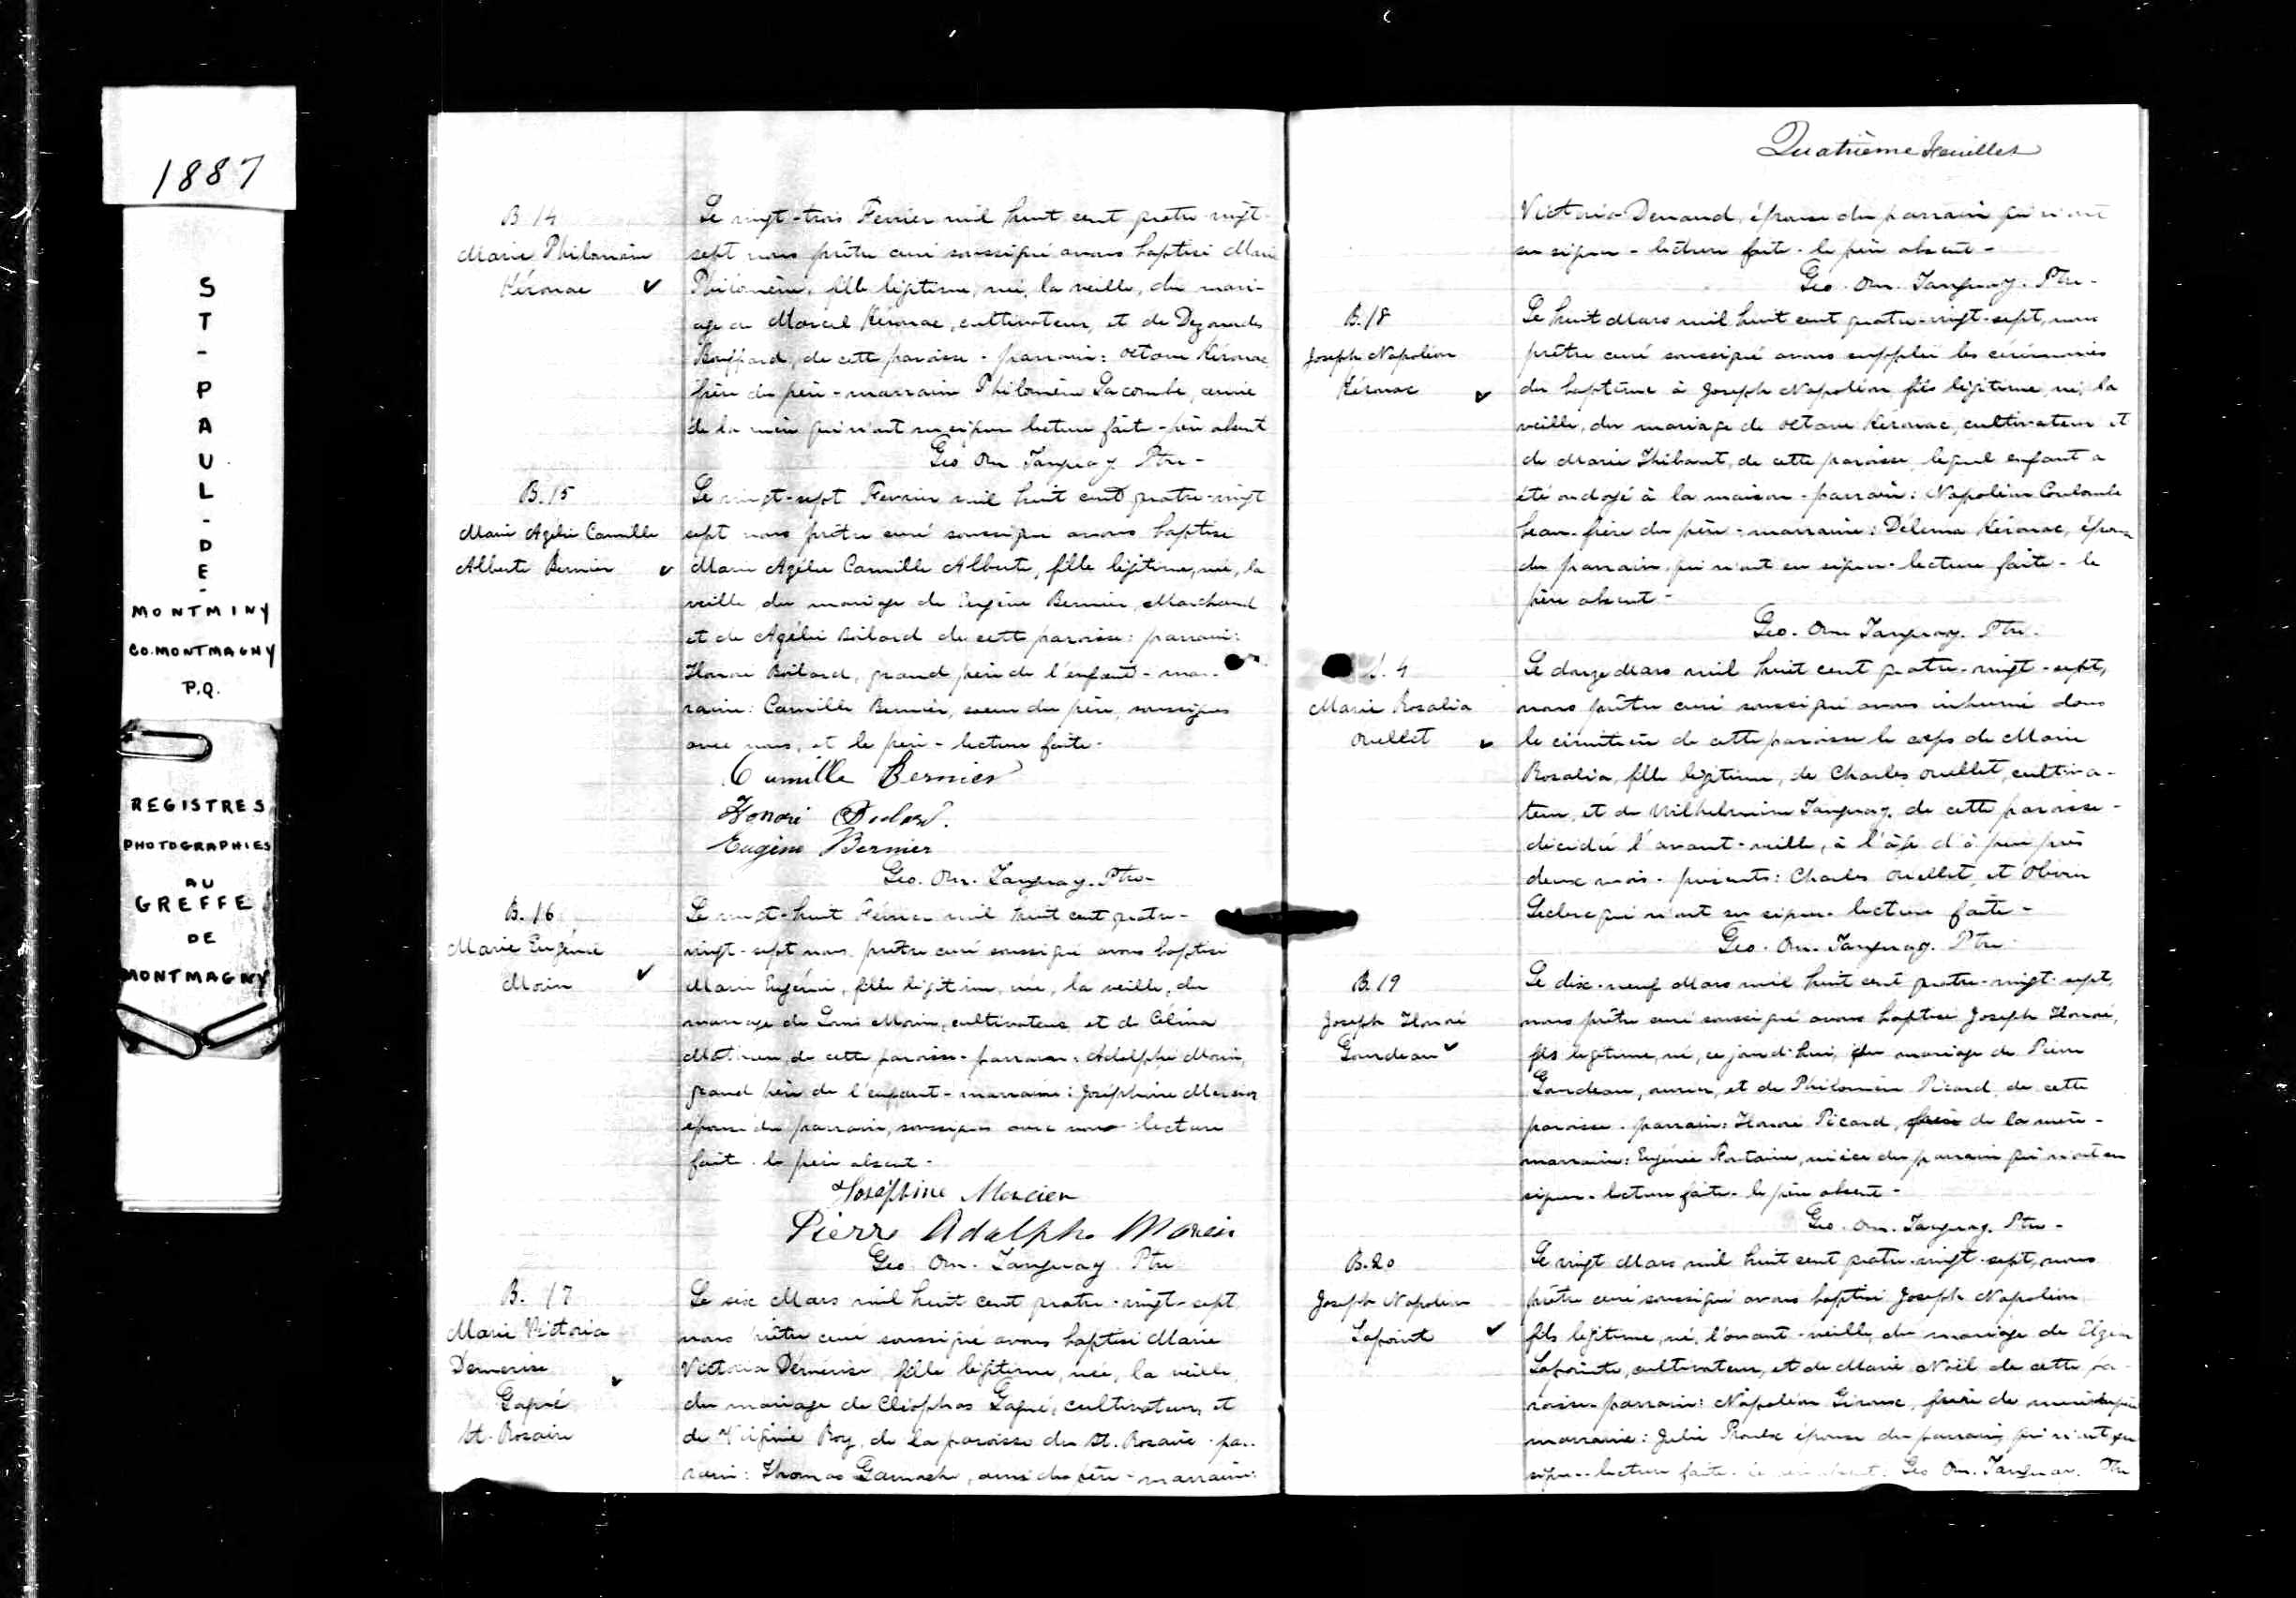 1887
ST-PAUL-DE-
MONTMINY
CO. MONTMAGNY
P.Q.
REGISTRES
PHOTOGRAPHIES
AU
GREFFE
DE
MONTMAGNY
B. 14
Marie Philomène
Kérouac
Le vingt-trois Fevrier mil huit cent quatre-vingt-
sept nous prêtre curé soussigné avons baptisé Marie
Philomène, fille légitime, née, la veille, du mari-
age de Marcel Kérouac, cultivateur, et de Dezanges
Bouffard, de cette paroisse - parrain: Octave Kérouac,
frère du père - marraine Philomène Lacombe, cousine
de la mère qui n'ont su signer lecture faite - père absent
Geo. Om. Tanguay Ptre-
B. 15
Marie Azélie Camille
Alberte Bernier
Le vingt-sept Fevrier mil huit cent quatre-vingt
sept nous prêtre curé soussigné avons baptisé
Marie Azélie Camille Alberte, fille légitime, née, la
veille du mariage de Eugène Bernier, Marchand
et de Azélie Boilard de cette paroisse: parrain:
Honoré Boilard, grand père de l'enfant - mar-
raine: Camille Bernier, soeur du père, soussignés
avec nous, et le père - lecture faite.
Camille Bernier
Honoré
Eugène Bernier
Geo. Om. Tanguay. Ptre-
B. 16
Marie Eugénie
Morin
Le vingt-huit Février mil huit cent quatre-
vingt-sept nous prêtre curé soussigné avons baptisé
Marie Eugénie, fille légitime, née, la veille, du
mariage de Louis Morin, cultivateur et de Célina
Mathieu de cette paroisse - parrain: Adolphe Morin,
grand père de l'enfant - marraine: Joséphine Mercier
épouse du parrain, soussignés avec nous lecture
faite. le père absent -
Joséphine Mercier
Pierre Adolphe Morin
Geo. Om. Tanguay. Ptre
B. 17
Marie Victoria
Demerise
Gagné
St. Rosaire
Le six Mars mil huit cent quatre-vingt-sept
nous prêtre curé soussigné avons baptisé Marie
Victoria Démerise, fille légitime, née, la veille,
du mariage de Cléophas Gagné, cultivateur, et
de Virginie Roy, de la paroisse du St. Rosaire - par-
rain: Thomas Gamache, ami du père - marraine:
Quatrième Feuillet
Victoria épouse du parrain qui n'ont
su signer - lecture faite - le père absent -
Geo. Om. Tanguay. Ptre-
B. 18
Joseph Napoléon
Kérouac
Le huit Mars mil huit cent quatre-vingt-sept, nous
prêtre curé soussigné avons suppléé les cérémonies
du baptême à Joseph Napoléon fils légitime, né, la
veille, du mariage de Octave Kérouac, cultivateur et
de Marie Thibaut, de cette paroisse, lequel enfant a
été ondoyé à la maison - parrain: Napoléon Coulombe
beau-frère du père - marraine: Délema Kérouac, épouse
du parrain, qui n'ont su signer - lecture faite - le
père absent -
Geo. Om. Tanguay. Ptre.
S. 4
Marie Rosalia
Ouellet
Le douze Mars mil huit cent quatre-vingt-sept,
nous prêtre curé soussigné avons inhumé dans
le cimetière de cette paroisse le corps de Marie
Rosalia, fille légitime, de Charles Ouellet, cultiva-
teur, et de Wilhelmine Tanguay, de cette paroisse -
décédée l'avant-veille, à l'âge d'à peu près
deux mois - présents: Charles Ouellet, et
Leclerc qui n'ont su signer - lecture faite -
Geo. Om. Tanguay. Ptre.
B. 19
Joseph Honoré
Gourdeau
Le dix-neuf Mars mil huit cent quatre-vingt-sept,
nous prêtre curé soussigné avons baptisé Joseph Honoré,
fils légitime, né, ce jour d'hui, du mariage de Pierre
Gourdeau, et de Philomène Picard, de cette
paroisse - parrain: Honoré Picard, frère de la mère -
marraine: Eugénie Fontaine, nièce du parrain qui n'ont su
signer - lecture faite - le père absent -
Geo. Om. Tanguay. Ptre-
B. 20
Joseph Napoléon
Lapointe
Le vingt Mars mil huit cent quatre-vingt-sept, nous
prêtre curé soussigné avons baptisé Joseph Napoléon,
fils légitime, né, l'avant-veille, du mariage de Elzear
Lapointe, cultivateur, et de Marie Noël de cette pa-
roisse - parrain: Napoléon Giroux, frère de
marraine: Julie Proulx épouse du parrain qui n'ont su
signer - lecture faite - le père absent. Geo. Om. Tanguay. Ptre